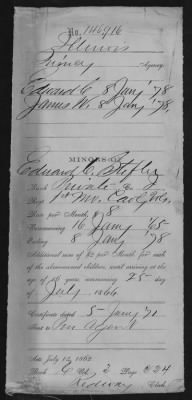 No. 146916
Illinois
Quincy Agency.
Edward C. 8 Jany '78
James W. 8 Jany '78
MINORS OF
Edward C.
Rank Private Co
Regt 1st Mo. Cav. Vols.
Rate per Month, $8
Commencing 16 June '65
Ending 8 Jany '78
Additional sum of $2 per Month for each
of the abovenamed children, until arriving at the
age of 16 years, commencing 25 day
of July 1866
Certificate dated 5 Jany '71
Sent to Pen Agent
Act July 14, 1862
Book C Vol. 2 Page 324
Ridgway Clerk.